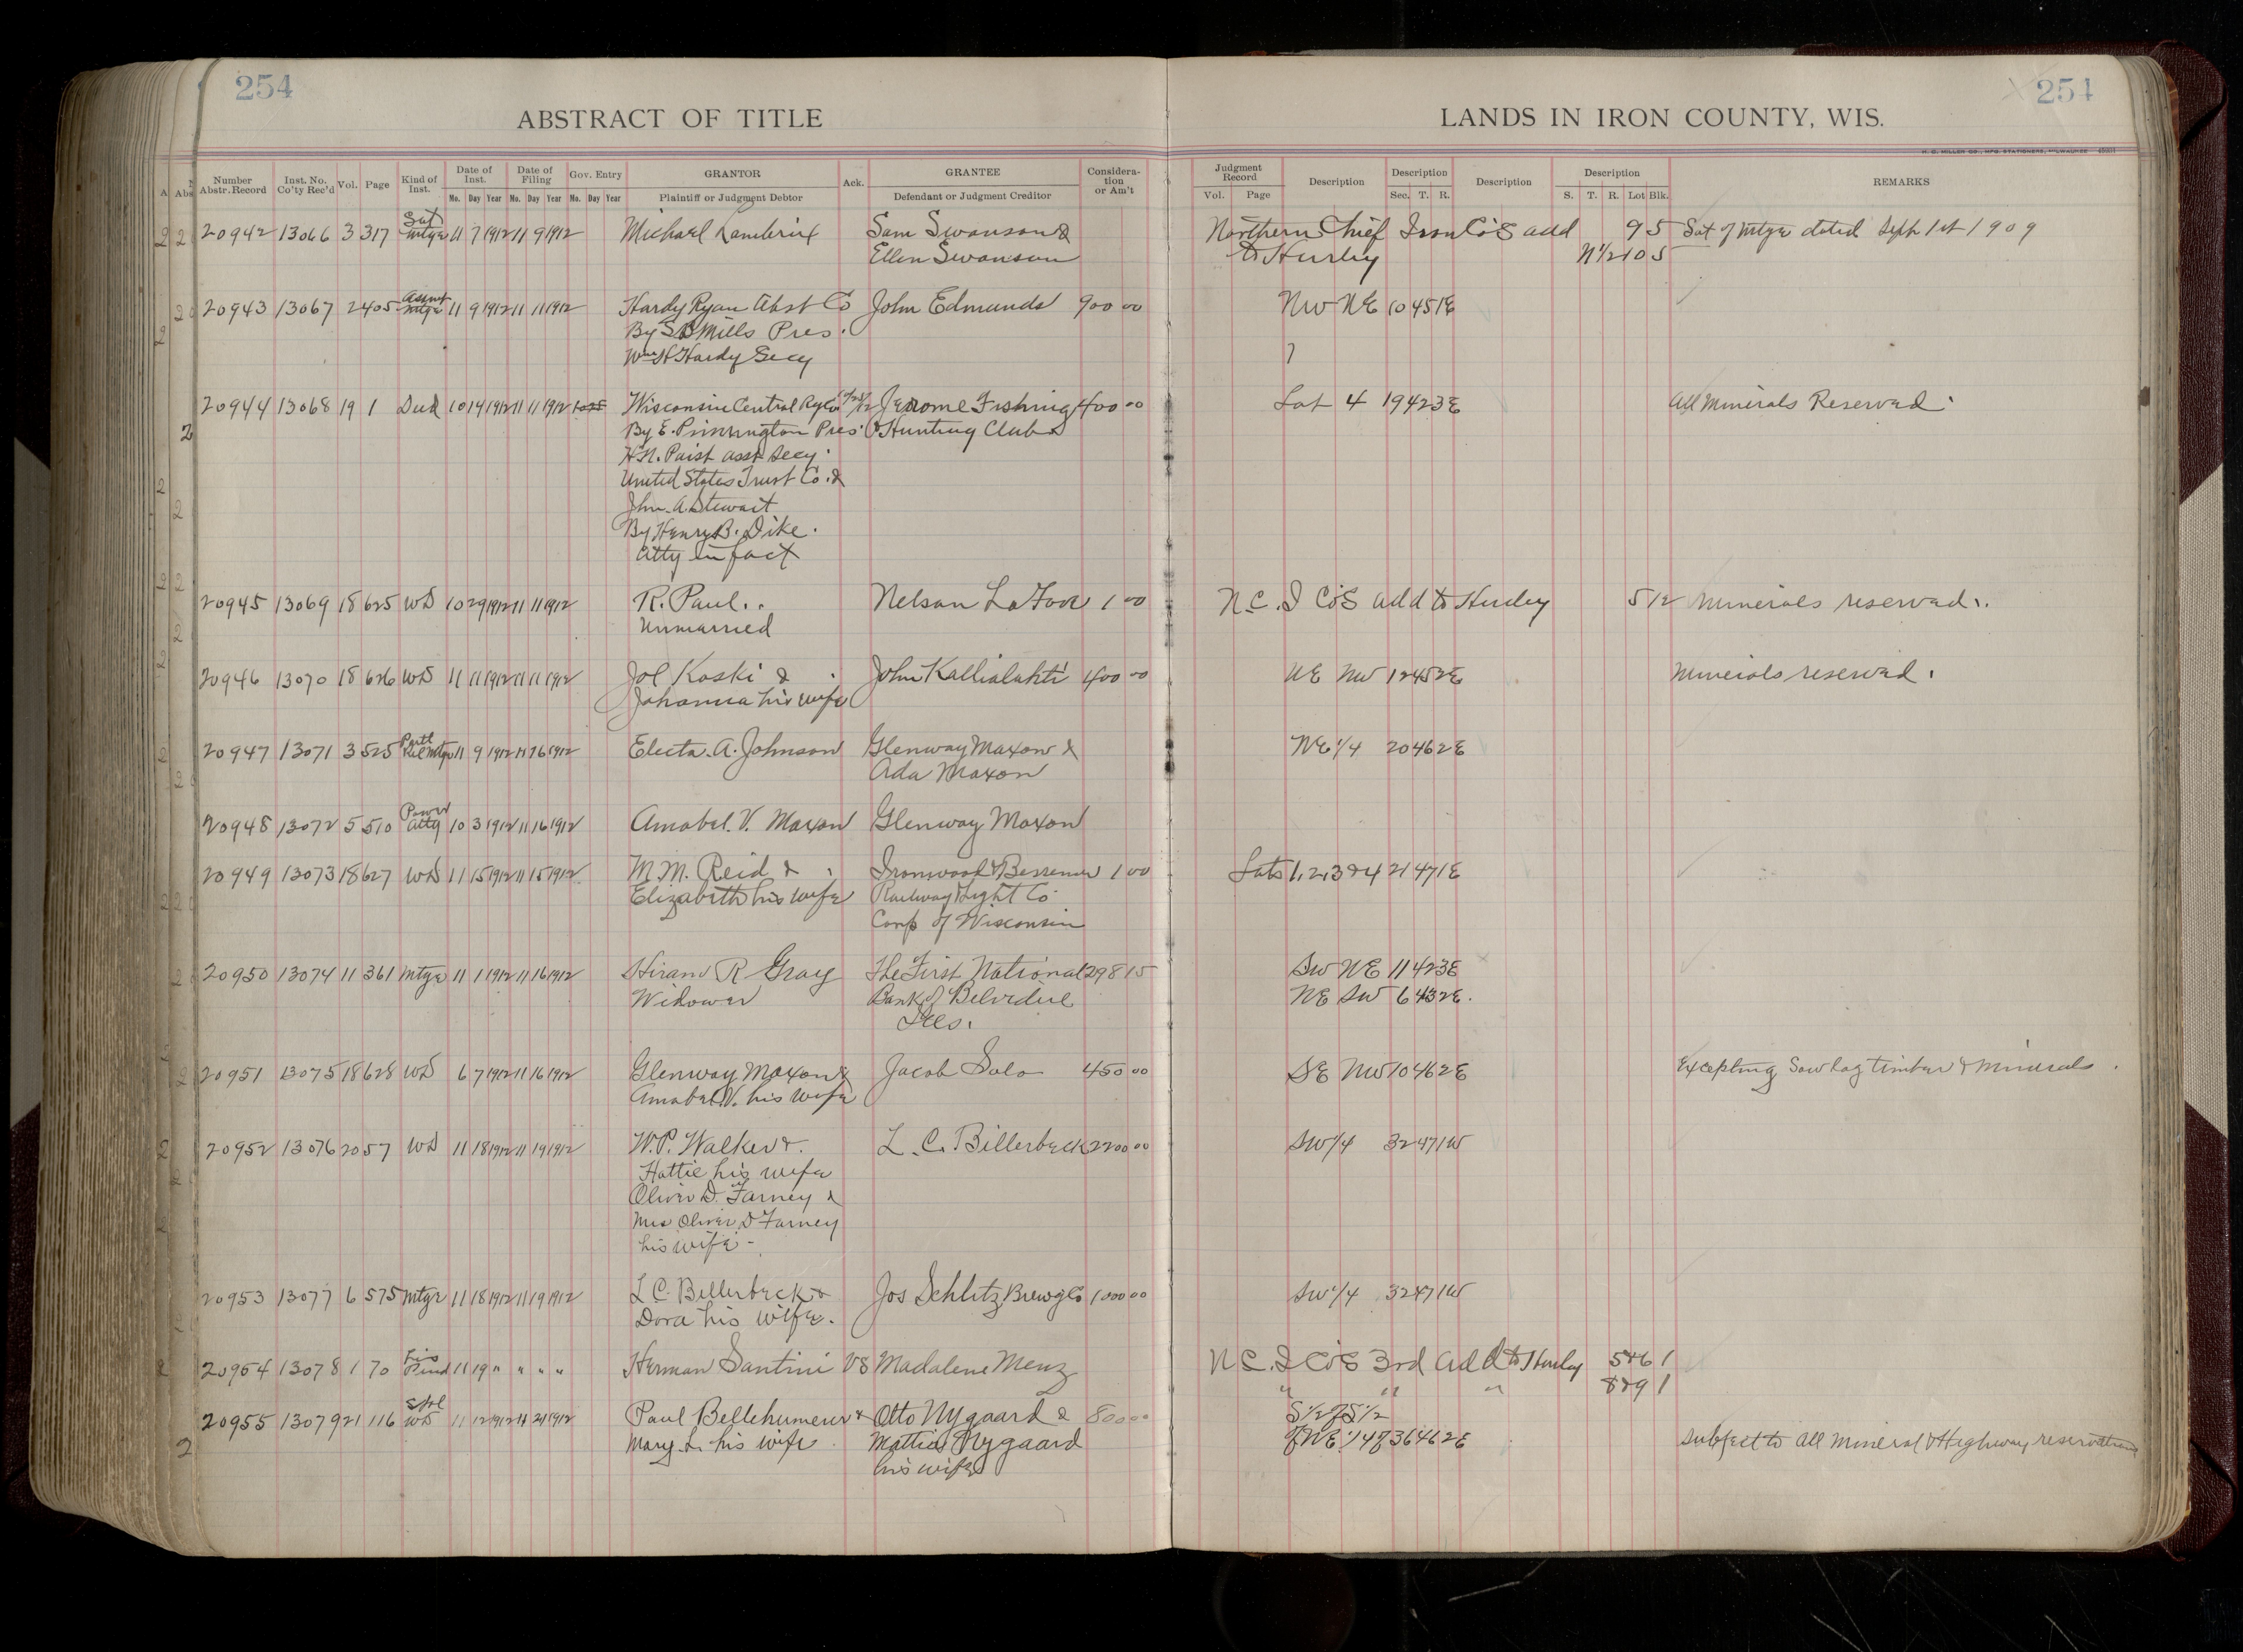 254
254
ABSTRACT OF TITLE
LANDS IN IRON COUNTY, WIS.
Number Abstr. Record Inst. No. Co'ty Rec'd Vol. Page Kind of Inst. Date of Inst. Mo. Day Year Date of Filing Mo. Day Year Gov. Entry Mo. Day Year GRANTOR Plaintiff or Judgment Debtor Ack. GRANTEE Defendant or Judgment Creditor Consideration or Am't
Judgment Record Vol. Page Description Description Sec. T. R. Description Description S. T. R. Lot Blk. REMARKS
20942 13066 3 317 Sat Mtge 11 7 1912 11 9 1912 Michael Sam Swanson & Northern Chief Iron Co's add 9 5 Sat of Mtge dated Sept 1st 1909
Ellen Swanson to Hurley N 1/2 10 5
20943 13067 2 405 Assmt Mtge 11 9 1912 11 11 1912 Hardy Ryan Abst Co John Edmunds 900 00 NW NE 10 45 1E
By S B Mills Pres.
Wm H Hardy Secy
20944 13068 19 1 Deed 10 14 1912 11 11 1912 Wisconsin Central Ry Co Jerome Fishing 400 00 Lot 4 19 42 3E All Minerals Reserved.
By E. Pennington Pres. & Hunting Club
H.N. Paist asst Secy.
United States Trust Co. &
John A. Stewart
By Henry B. Dike.
Atty in fact
20945 13069 18 625 WD 10 29 1912 11 11 1912 R. Paul Nelson La Fave 1 00 N.C. I Co's add to Hurley 5 12 Minerals reserved.
Unmarried
20946 13070 18 626 WD 11 11 1912 11 11 1912 Jol Koski & John Kallialahti 400 00 NE NW 12 45 2E Minerals reserved.
Johanna his wife
20947 13071 3 525 Partl Rel Mtge 11 9 1912 11 16 1912 Electa A. Johnson Glenway Maxon & NE 1/4 20 46 2E
Ada Maxon
20948 13072 5 510 Power Atty 10 3 1912 11 16 1912 Amabel V. Maxon Glenway Maxon
20949 13073 18 627 WD 11 15 1912 11 15 1912 M.M. Reid & Ironwood & Bessemer 1 00 Lots 1, 2, 3 & 4 21 47 1E
Elizabeth his wife Railway & Light Co
Corp of Wisconsin
20950 13074 11 361 Mtge 11 1 1912 11 16 1912 Hiram R Gray The First National 298 15 SW NE 11 42 3E
Widower Bank of Belvidere NE SW 6 43 2E.
Ills.
20951 13075 18 628 WD 6 7 1912 11 16 1912 Glenway Maxon & Jacob Salo 450 00 SE NW 10 46 2E Excepting Saw log timber & Minerals.
Amabel V. his wife
20952 13076 20 57 WD 11 18 1912 11 19 1912 W.P. Walker & L. C. Billerbeck 2200 00 SW 1/4 32 47 1W
Hattie his wife
Oliver D. Farney &
Mrs Oliver D Farney
his wife
20953 13077 6 575 Mtge 11 18 1912 11 19 1912 L C. Billerbeck & Jos Schlitz Brewg Co 1000 00 SW 1/4 32 47 1W
Dora his wife.
20954 13078 1 70 Lis Pend 11 19 " " " " Herman Santini VS Madalene Menz N C. I Co's 3rd Add to Hurley 5&6 1
" " " 8&9 1
20955 13079 21 116 Spl WD 11 12 1912 11 21 1912 Paul Bellehumeur & Otto Nygaard & 800 00 S 1/2 of S 1/2
Mary L. his wife Mattie Nygaard of NE 1/4 of 36 46 2E Subject to all Mineral & Highway reservations
his wife